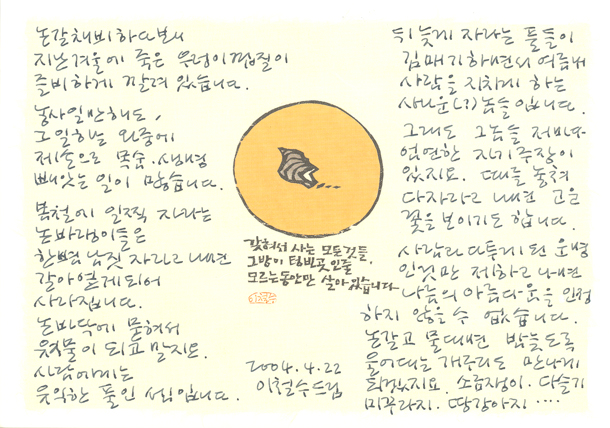 논갈채비하다보니
지난겨울에 죽은 우렁이껍질이
즐비하게 깔려 있습니다.
농사일만해도,
그일하는 와중에
제손으로 목숨·생명
빼앗는 일이 많습니다.
봄철에 일찍 자라는
논바랭이들은
한뼘 남짓 자라고나면
갈아엎게되어
사라집니다.
논바닥에 묻혀서
유기물이 되고 말지요.
사람에게는
유익한 풀인 셈입니다.
갇혀서 사는 모든것들,
그방이 텅빈곳인줄
모르는동안만 살아있습니다
2004.4.22
이철수드림
뒤늦게 자라는 풀들이
김매기하면서 여름내
사람을 지치게 하는
사나운(?)놈들입니다.
그래도 그놈들 저마다
엄연한 자기주장이
있지요. 때를 놓쳐
다자라고 나면 고운
꽃을 보이기도 합니다.
사람과 다투게 된 운명
인것만 제하고 나면
나름의 아름다움을 인정
하지 않을수 없습니다.
논갈고 물대면 밤늦도록
울어대는 개구리도 만나게
되겠지요. 소금쟁이. 다슬기
미꾸라지. 땅강아지 ....